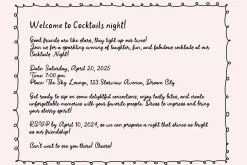 Welcome to Cocktails night!
Good friends are like stars, they light up our lives!
Join us for a sparkling evening of laughter, fun, and fabulous cocktails at our
Cocktails Night!
Date: Saturday, April 20, 2025
Time: 7:00 pm
Place: The Sky Lounge, 123 Starview Avenue, Dream City
Get ready to sip on some delightful concoctions, enjoy tasty bites, and create
unforgettable memories with your favorite people. Dress to impress and bring
your starry spirit!
RSVP by April 10, 2024, so we can prepare a night that shines as bright
as our friendship!
Can't wait to see you there! Cheers!